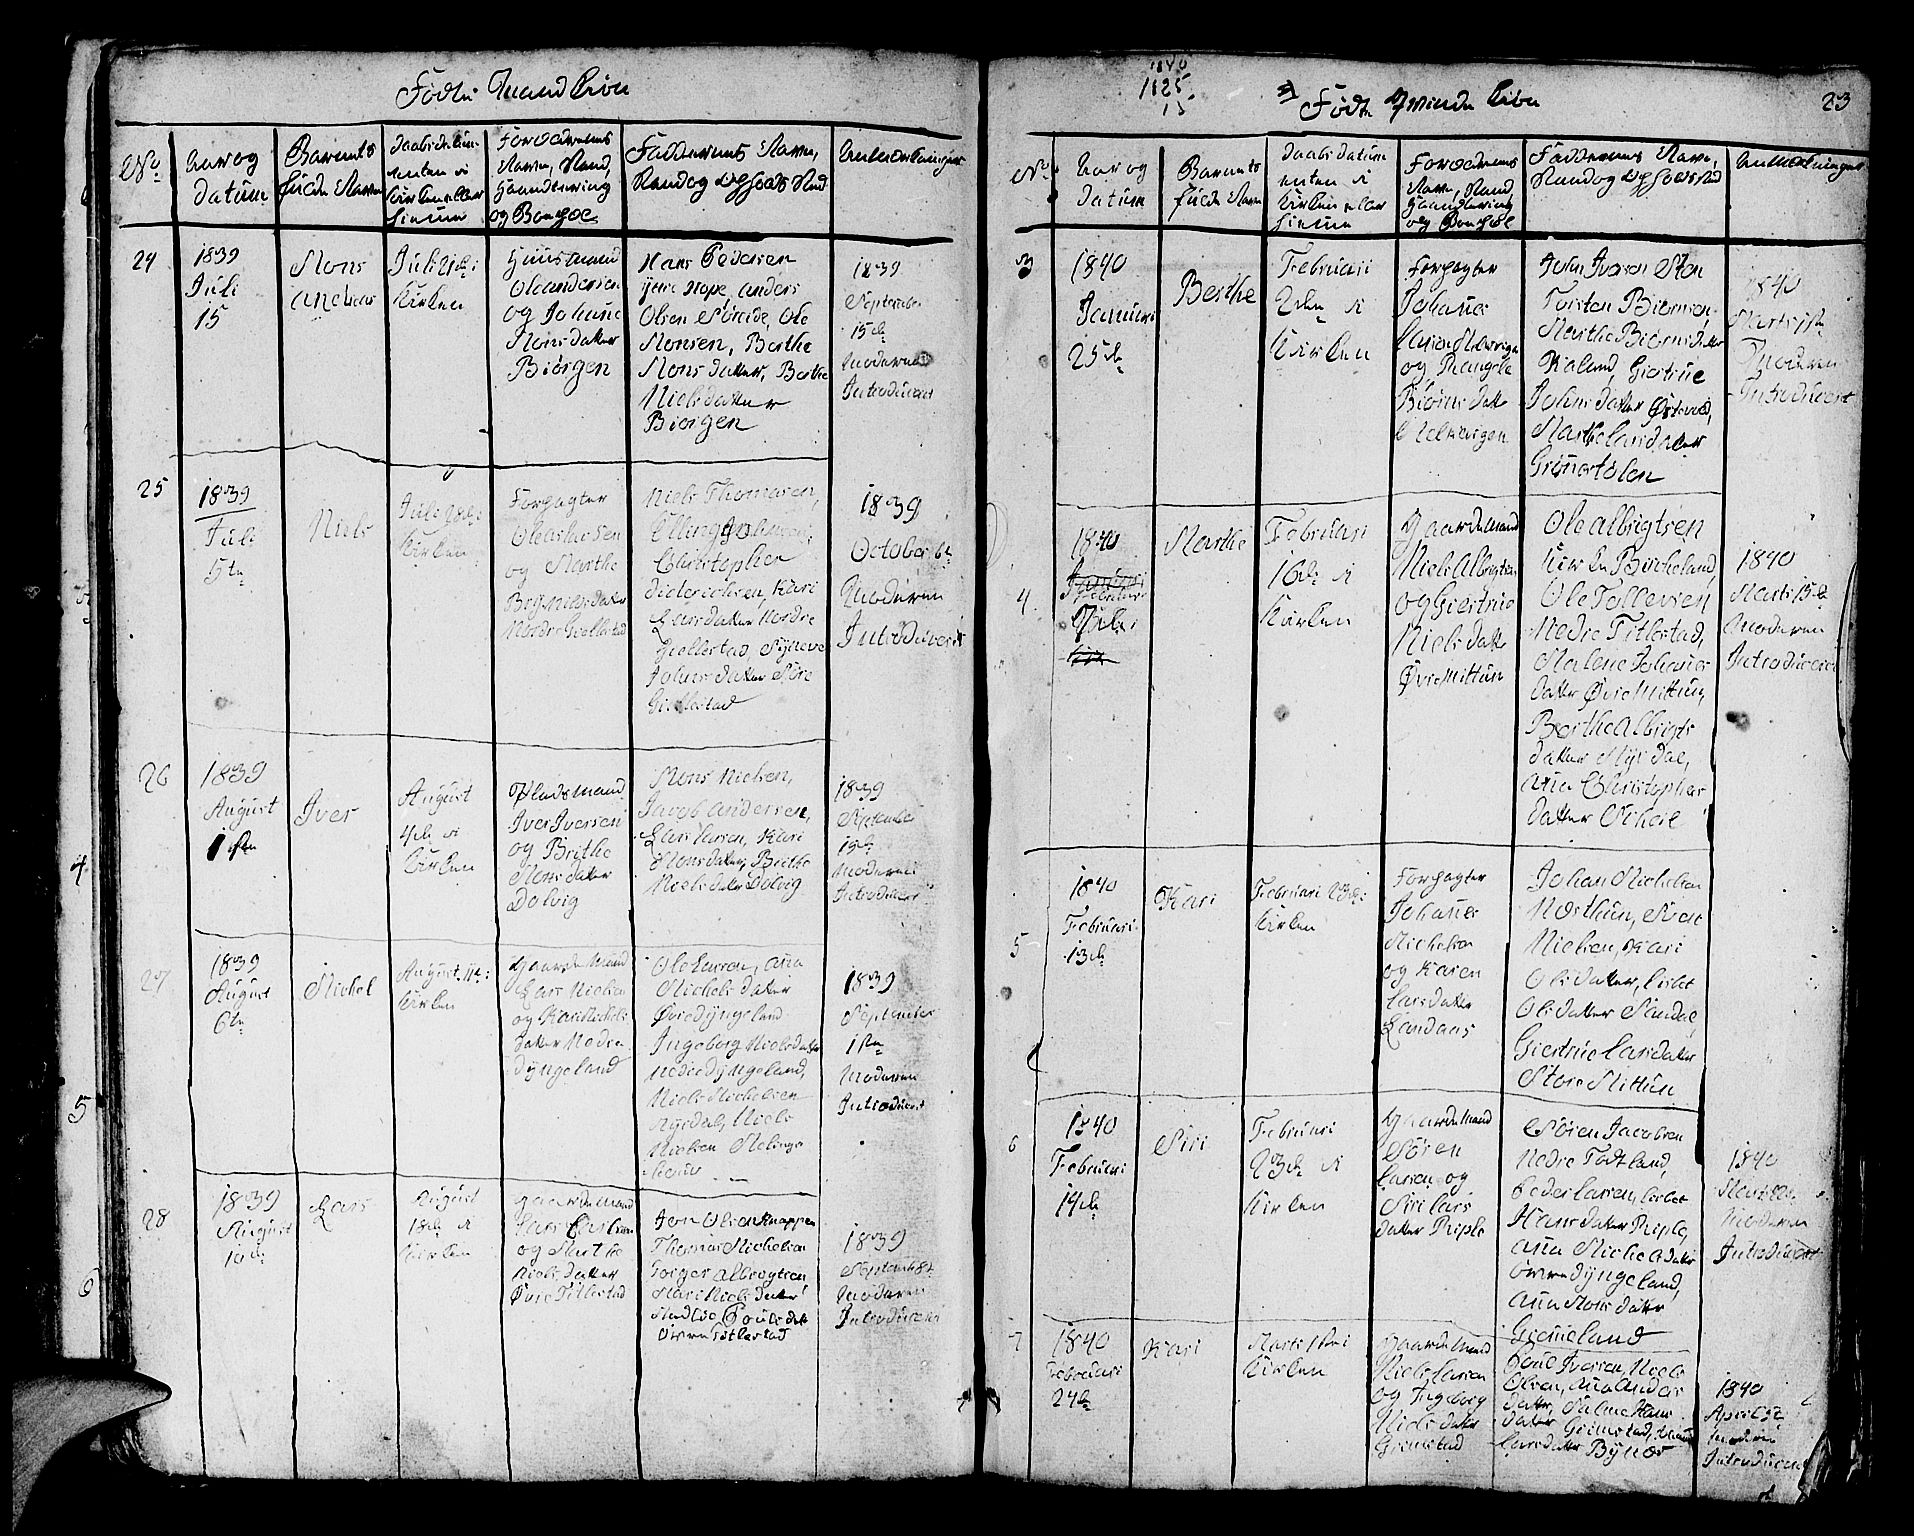 Fødte Mandkiøn
No
Aar og
Datum
Barnets
fulde Navn
Daabs datum
enten i
Kirken eller
hiemme
Forældrenes
Navn, Stand,
Haandtering
og Bopæl
Faddernes Navn,
Stand og Opholds Sted
Anmerkninger
24
1839
Juli
15
Mons
Andreas
Juli 21de i
Kirken
Huusmand
Ole Andersen
og Johanne
Monsdatter
Biørgen
Hans Pedersen
Hope, Anders
Olsen Søreide, Ole
Monsen, Berthe
Monsdatter, Berthe
Nielsdatter
Biørgen
1839
September
15de
Moderen
Introduceret
25
1839
Juli
5te
Niels
Juli 28de i
Kirken
Forpagter
Ole Larsen
og Marthe
Nielsdatter
Nordre Giellestad
Niels Thomasen,
Elling Johannesen,
Christopher
Diderichsen, Kari
Larsdatter Nordre
Giellestad, Synneve
Johnsdatter Søre
Giellestad
1839
October 6te
Moderen
Introduceret
26
1839
August
1ste
Iver
August
4de i
Kirken
Pladsmand
Iver Iversen
og Brithe
Monsdatter
Dolvig
Mons Nielsen,
Jacob Andersen,
Lars Larsen, Kari
Monsdatter, Brithe
Nielsdatter Dolvig
1839
September
15de
Moderen
Introduceret
27
1839
August
6te
Michel
August 11te i
Kirken
Gaardemand
Lars Nielsen
og Kari Michels
datter Nedre
Dyngeland
Ole Larsen, Anna
Michelsdatter
Øvre Dyngeland
Ingeborg Nielsdatter
Nedre Dyngeland,
Niels Michelsen
Myrdal, Niels
Nielsen
1839
September
1ste
Moderen
Introduceret
28
1839
August
10de
Lars
August
18de i
Kirken
Gaardemand
Lars
og Marthe
Nielsdatter
Øvre Titlestad
Jon Olsen Knappen
Thomas Michelsen
Torger Albrigtsen,
Mari Nielsdatter
Poulsdatter
Øvre Titlestad
1839
September 8de
Moderen
Introduceret
1840
1825
15
Fødte Qvindekiøn
23
No
Aar og
Datum
Barnets
fulde Navn
Daabs datum
enten i
Kirken eller
hiemme
Forældrenes
Navn, Stand
Haandtering
og Bopæl
Faddernes Navn,
Stand og Opholds Sted
Anmerkninger
3
1840
Januari
25de
Berthe
Februari
2den i
Kirken
Forpagter
Johannes
Larsen
og Rangele
Biørnsdatter
John Iversen
Torsten Biørnsen,
Marthe Biørnsdatter
Kaland, Giertrue
Johnsdatter Østevold,
Marthe Larsdatter
1840
Marts 1ste
Moderen
Introduceret
4
1840
Februari
7de
Marthe
Februari
16de i
Kirken
Gaardemand
Niels Albrigtsen
og Giertrue
Nielsdatter
Øvre Mittun
Ole Albrigtsen
Kirke Birkeland,
Ole Tollevsen
Nedre Titlestad,
Malene Johannes
datter Øvre Mittun,
Berthe Albrigts
datter Myrdal,
Anna Christopher
datter
1840
Marts 15de
Moderen
Introduceret
5
1840
Februari
13de
Kari
Februari 23de i
Kirken
Forpagter
Johannes
Michelsen
og Karen
Larsdatter
Landaas
Johan Michelsen
Nordthun, Sivert
Nielsen, Kari
Olsdatter, Lisbet
Olsdatter Sandal,
Giertrue Larsdatter
Store Mittun
6
1840
Februari
14de
Siri
Februari
23de i
Kirken
Gaardemand
Søren
Larsen og
Siri Lars
datter Riple
Søren Jacobsen
Nedre Todtland,
Peder Larsen, Lisbet
Hansdatter Riple,
Anna Michelsdatter
Øvre Dyngeland,
Anna Monsdatter
Grimeland
1840
Marts 22de
Moderen
Introduceret
7
1840
Februari
24de
Kari
Marts 1ste i
Kirken
Gaardemand
Niels Larsen
og Ingeborg
Nielsdatter
Grimstad
Poul Iversen, Niels
Olsen, Anna Anders
datter, Hans
datter Grimstad,
Larsdatter Bynæs
1840
April
Moderen
Introduceret
4
5
6